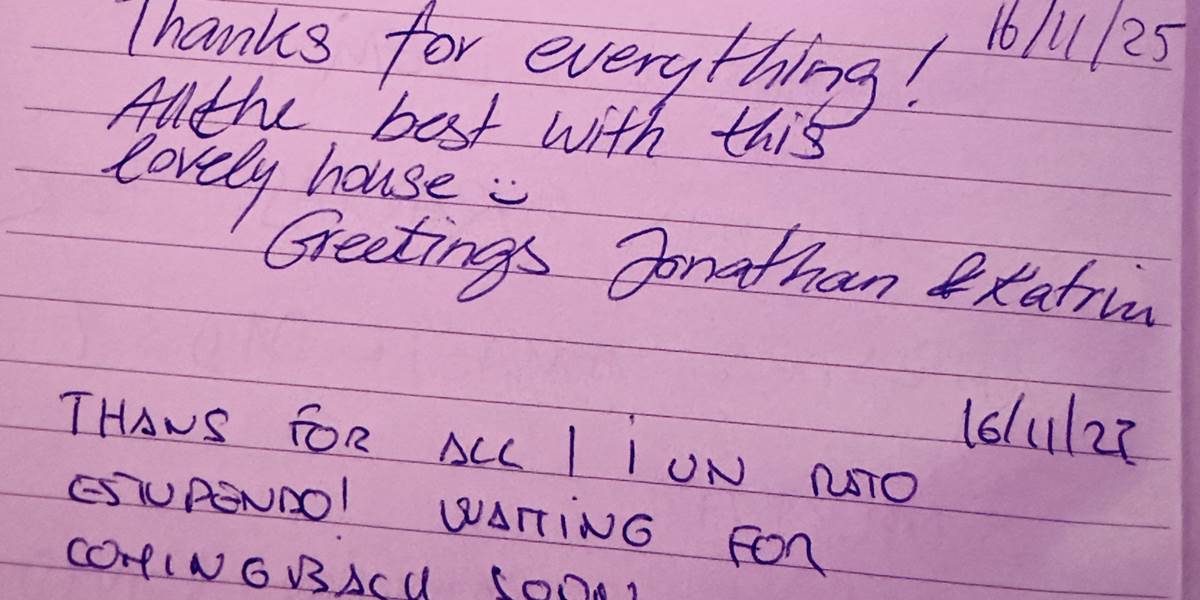 Thanks for everything! 16/11/25
All the best with this
lovely house :)
Greetings Jonathan & Katrin
THANS FOR ALL ! ¡ UN RATO 16/11/22
ESTUPENDO! WAITING FOR
COMING BACK SOON!